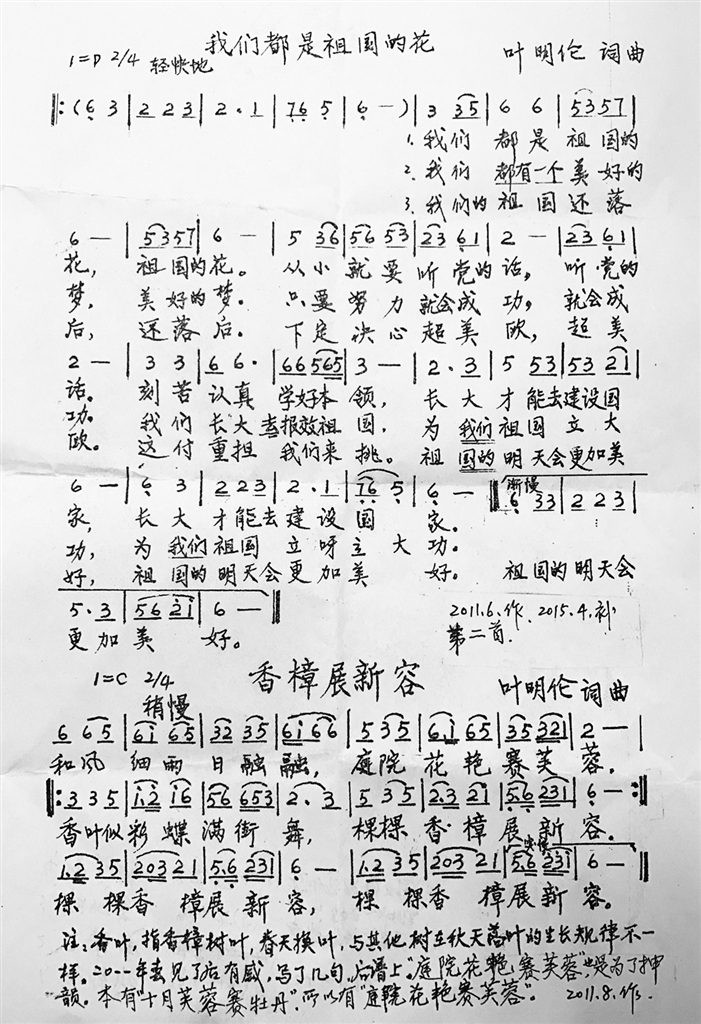 我们都是祖国的花
1=D 2/4 轻快地 叶明伦 词曲
‖:(6 3|2 2 3|2·1|76 5|6 —)|3 35|6 6|5357|
1.我们 都是 祖国的
2.我们 都有一个 美好的
3.我们的 祖国 还落
6 —|5357|6 —|5 36|56 53|23 61|2 —|23 61|
花, 祖国的花。 从小就要听党的话, 听党的
梦, 美好的梦。 只要努力就会成功, 就会成
后, 还落后。 下定决心超美欧, 超美
2 —|3 3|6 6·|66 565|3 —|2·3|5 53|53 21|
话。 刻苦认真 学好本领, 长大才能去建设国
功。 我们长大去报效祖国, 为我们祖国立大
欧。 这付重担 我们来挑。 祖国的明天会更加美
6 —|6 3|2 2 3|2·1|76 5|6 —‖渐慢 6 33|2 2 3|
家, 长大才能去建设国 家。
功, 为我们祖国立呀立大 功。
好, 祖国的明天会更加美 好。 祖国的明天会
5·3|56 21|6 —‖
更加美 好。
2011.6.作. 2015.4.补
第二首.
香樟展新容
1=C 2/4 稍慢 叶明伦 词曲
6 65|61 65|32 35|61 66|5 35|61 65|35 321|2 —|
和风 细雨 日融融, 庭院 花艳赛芙蓉。
‖:3 35|1·2 16|56 653|2·3|5 35|2·3 21|5·6 231|6 —:‖
香叶似彩蝶满街舞, 棵棵香樟展新容。
1·2 35|203 21|5·6 231|6 —|1·2 35|203 21|5·6 231|6 —‖
棵棵香樟展新容, 棵棵香樟展新容。
注:香叶,指香樟树叶,春天换叶,与其他树在秋天落叶的生长规律不一
样。2011年去见了后有感,写了几句,后谱上"庭院花艳赛芙蓉"也是为了押
韵。本有"十月芙蓉赛牡丹",所以有"庭院花艳赛芙蓉"。 2011.8.作